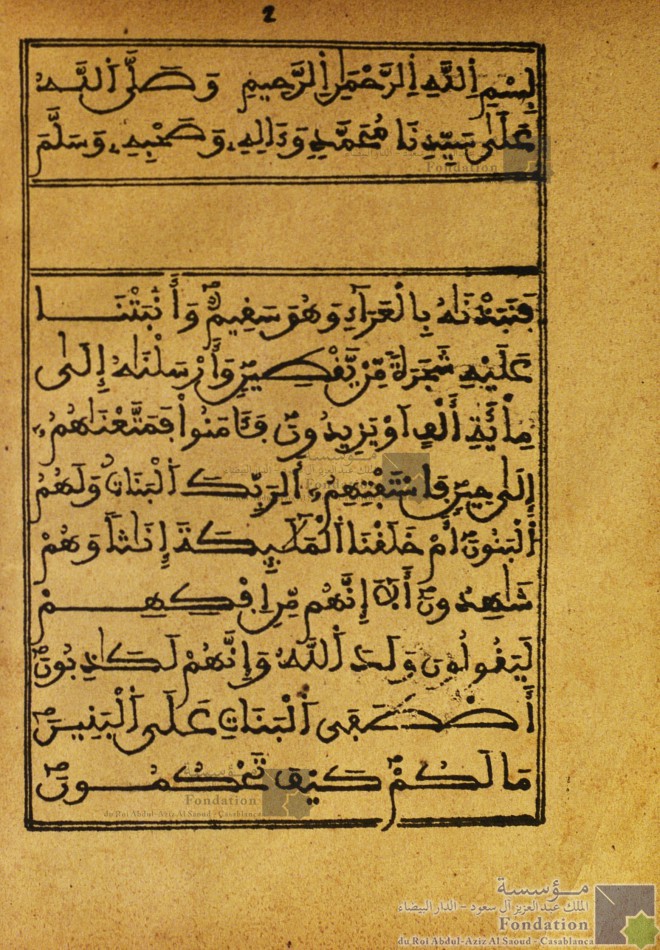 2
بِسْمِ اِ۬للَّهِ اِ۬لرَّحْمَٰنِ اِ۬لرَّحِيمِ وَصَلَّى اَ۬للَّهُ
عَلَىٰ سَيِّدِنَا مُحَمَّدٍ وَءَالِهِۦ وَصَحْبِهِۦ وَسَلَّمَ
فَنَبَذْنَٰهُ بِالْعَرَآءِ وَهُوَ سَفِيمٌ وَأَنۢبَتْنَا
عَلَيْهِ شَجَرَةً مِّنْ يَّفْطِينٍ وَأَرْسَلْنَٰهُ إِلَىٰ
مِاْئَةِ أَلْفٍ اَوْ يَزِيدُونَ فَـَٔامَنُواْ فَمَتَّعْنَٰهُمُۥٓ
إِلَىٰ حِينٍ فَاسْتَفْتِهِمُۥٓ أَلِرَبِّكَ اَ۬لْبَنَاتُ وَلَهُمُ
اُ۬لْبَنُونَ أَمْ خَلَفْنَا اَ۬لْمَلَٰٓئِكَةَ إِنَٰثاً وَهُمْ
شَٰهِدُونَ أَلَآ إِنَّهُم مِّنِ اِفْكِهِمْ
لَيَفُولُونَ وَلَدَ اَ۬للَّهُ وَإِنَّهُمْ لَكَٰذِبُونَ
أَصْطَفَى اَ۬لْبَنَاتِ عَلَى اَ۬لْبَنِينَ
مَا لَكُمْ كَيْفَ تَحْكُمُونَ
مؤسسة
الملك عبد العزيز آل سعود - الدار البيضاء
Fondation
du Roi Abdul-Aziz Al Saoud - Casablanca